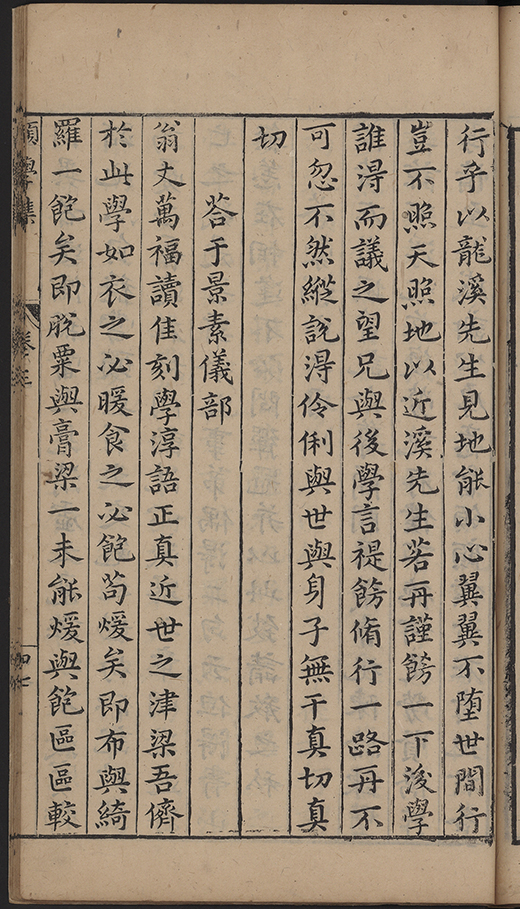 行乎以龍溪先生見地能小心翼翼不墮世間行
豈不照天照地以近溪先生若再謹飭一下後學
誰得而議之望兄與後學言禔飭脩行一路再不
可忽不然縱說得伶俐與世與身子無干真切真
切
荅于景素儀部
翁丈萬福讀佳刻學淳語正真近世之津梁吾儕
於此學如衣之必暖食之必飽苟煖矣即布與綺
羅一飽矣即脫粟與膏粱一未能煖與飽區區較
願學集
卷之三
四七